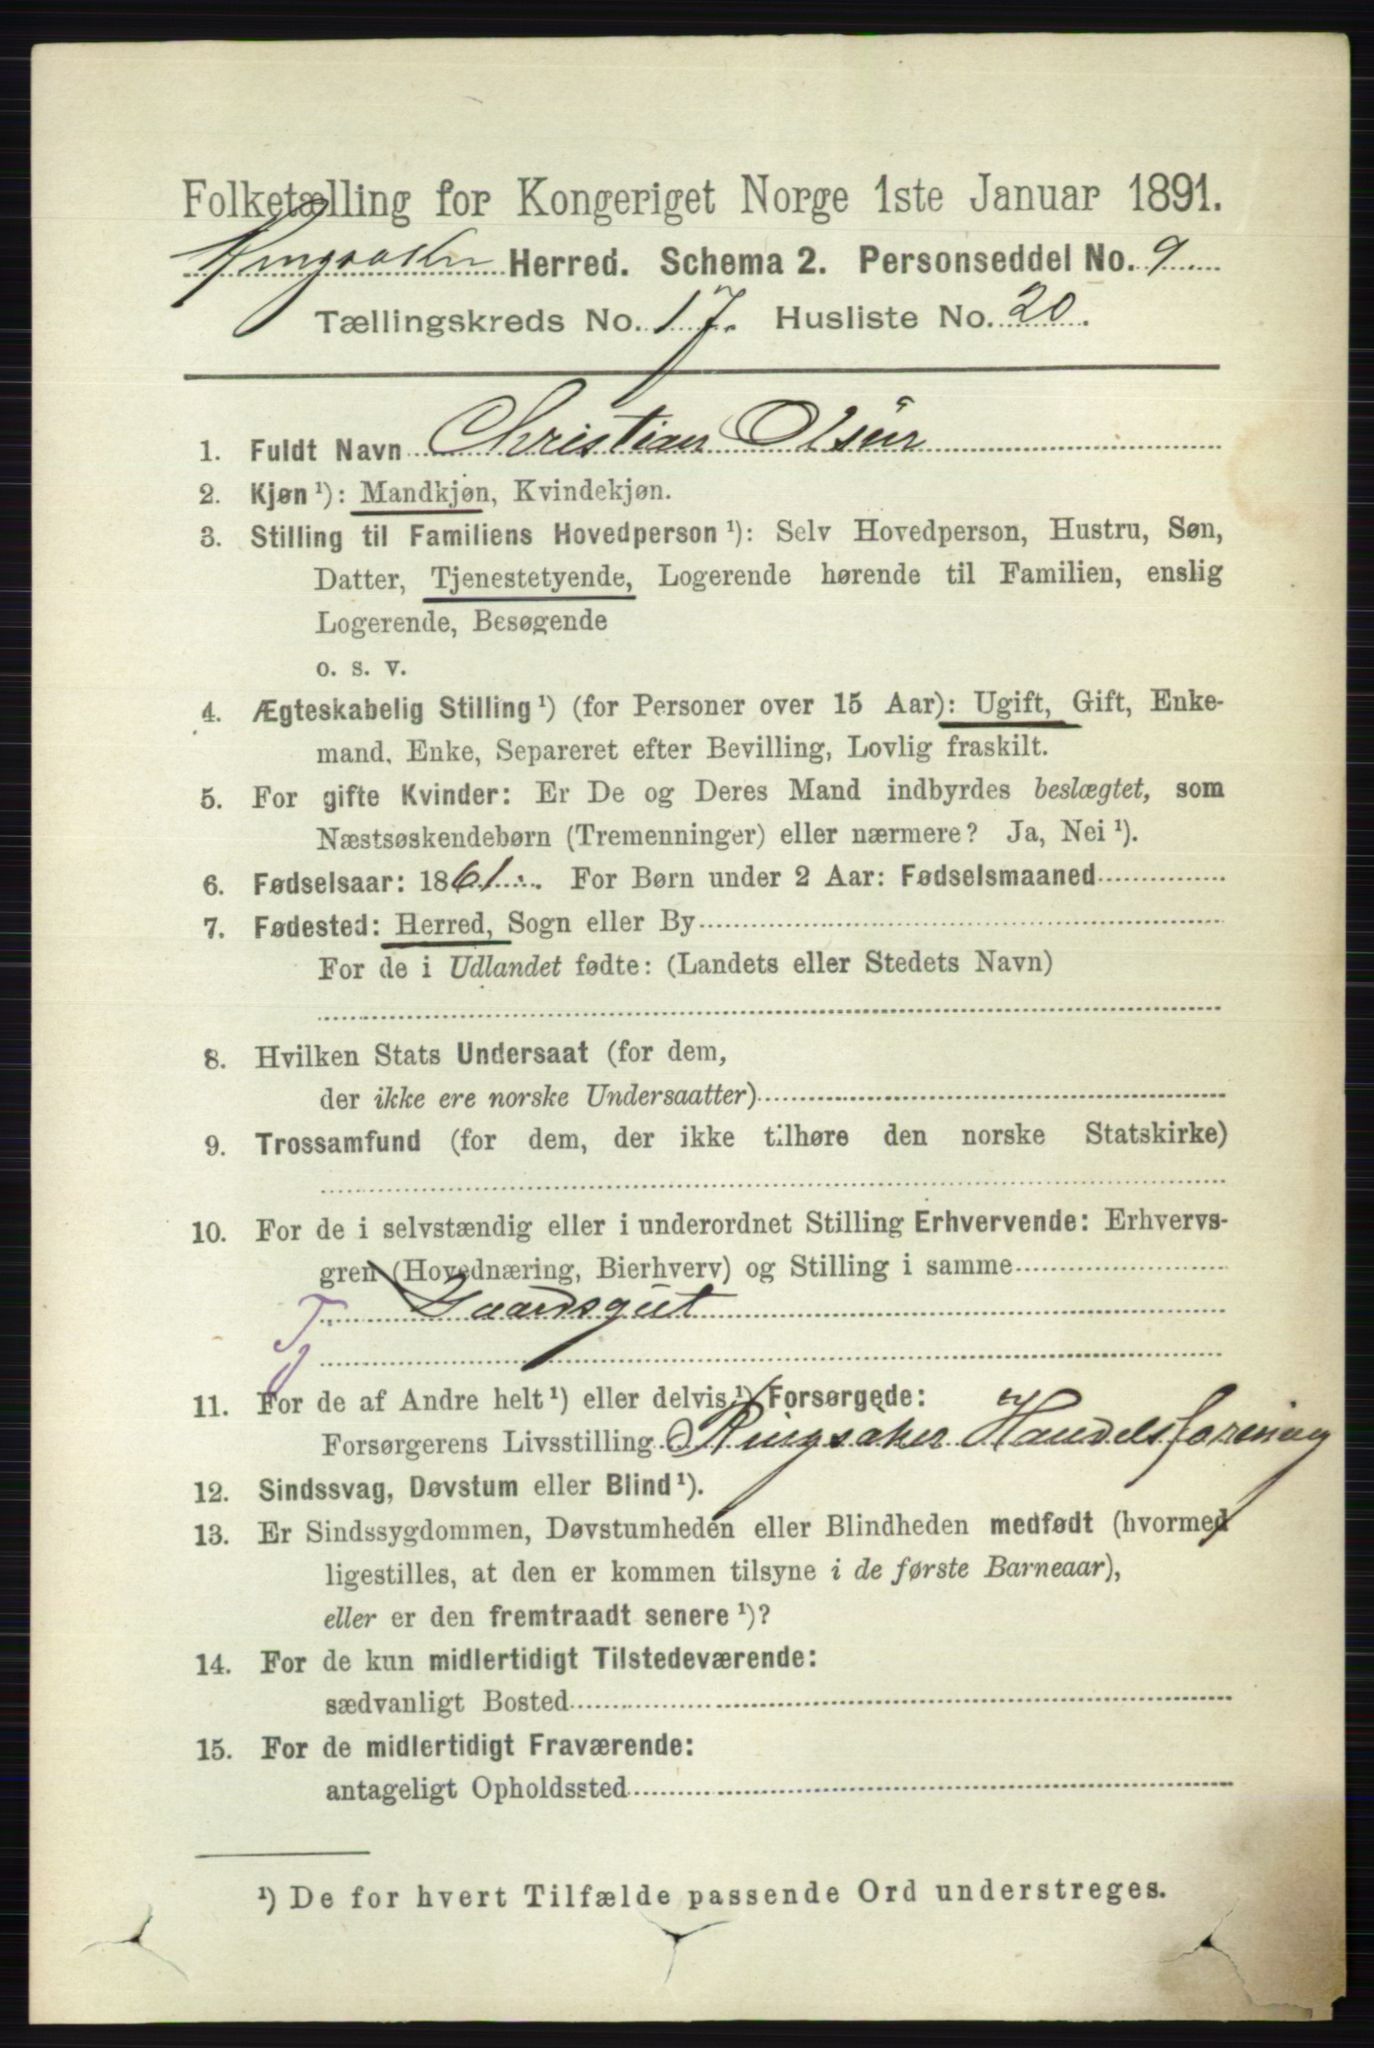 Folketælling for Kongeriget Norge 1ste Januar 1891.
Ringsaker Herred. Schema 2. Personseddel No. 9
Tællingskreds No. 17. Husliste No. 20.
1. Fuldt Navn Christian Olsen
2. Kjøn ¹): Mandkjøn, Kvindekjøn.
3. Stilling til Familiens Hovedperson ¹): Selv Hovedperson, Hustru, Søn,
Datter, Tjenestetyende, Logerende hørende til Familien, enslig
Logerende, Besøgende
o. s. v.
4. Ægteskabelig Stilling ¹) (for Personer over 15 Aar): Ugift, Gift, Enke-
mand, Enke, Separeret efter Bevilling, Lovlig fraskilt.
5. For gifte Kvinder: Er De og Deres Mand indbyrdes beslægtet, som
Næstsøskendebørn (Tremenninger) eller nærmere? Ja, Nei ¹).
6. Fødselsaar: 1861. For Børn under 2 Aar: Fødselsmaaned
7. Fødested: Herred, Sogn eller By
For de i Udlandet fødte: (Landets eller Stedets Navn)
8. Hvilken Stats Undersaat (for dem,
der ikke ere norske Undersaatter)
9. Trossamfund (for dem, der ikke tilhøre den norske Statskirke)
10. For de i selvstændig eller i underordnet Stilling Erhvervende: Erhvervs-
gren (Hovednæring, Bierhverv) og Stilling i samme
Tj Gaardsgut
11. For de af Andre helt ¹) eller delvis ¹) Forsørgede:
Forsørgerens Livsstilling Ringsaker Handelsforening
12. Sindssvag, Døvstum eller Blind ¹).
13. Er Sindssygdommen, Døvstumheden eller Blindheden medfødt (hvormed
ligestilles, at den er kommen tilsyne i de første Barneaar),
eller er den fremtraadt senere ¹)?
14. For de kun midlertidigt Tilstedeværende:
sædvanligt Bosted
15. For de midlertidigt Fraværende:
antageligt Opholdssted
¹) De for hvert Tilfælde passende Ord understreges.